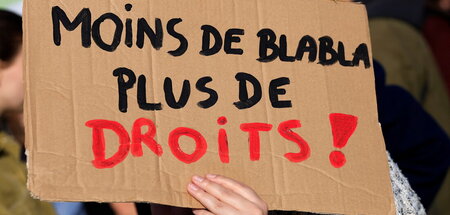 MOiNS DE BLABLA
PLUS DE
DROiTS !